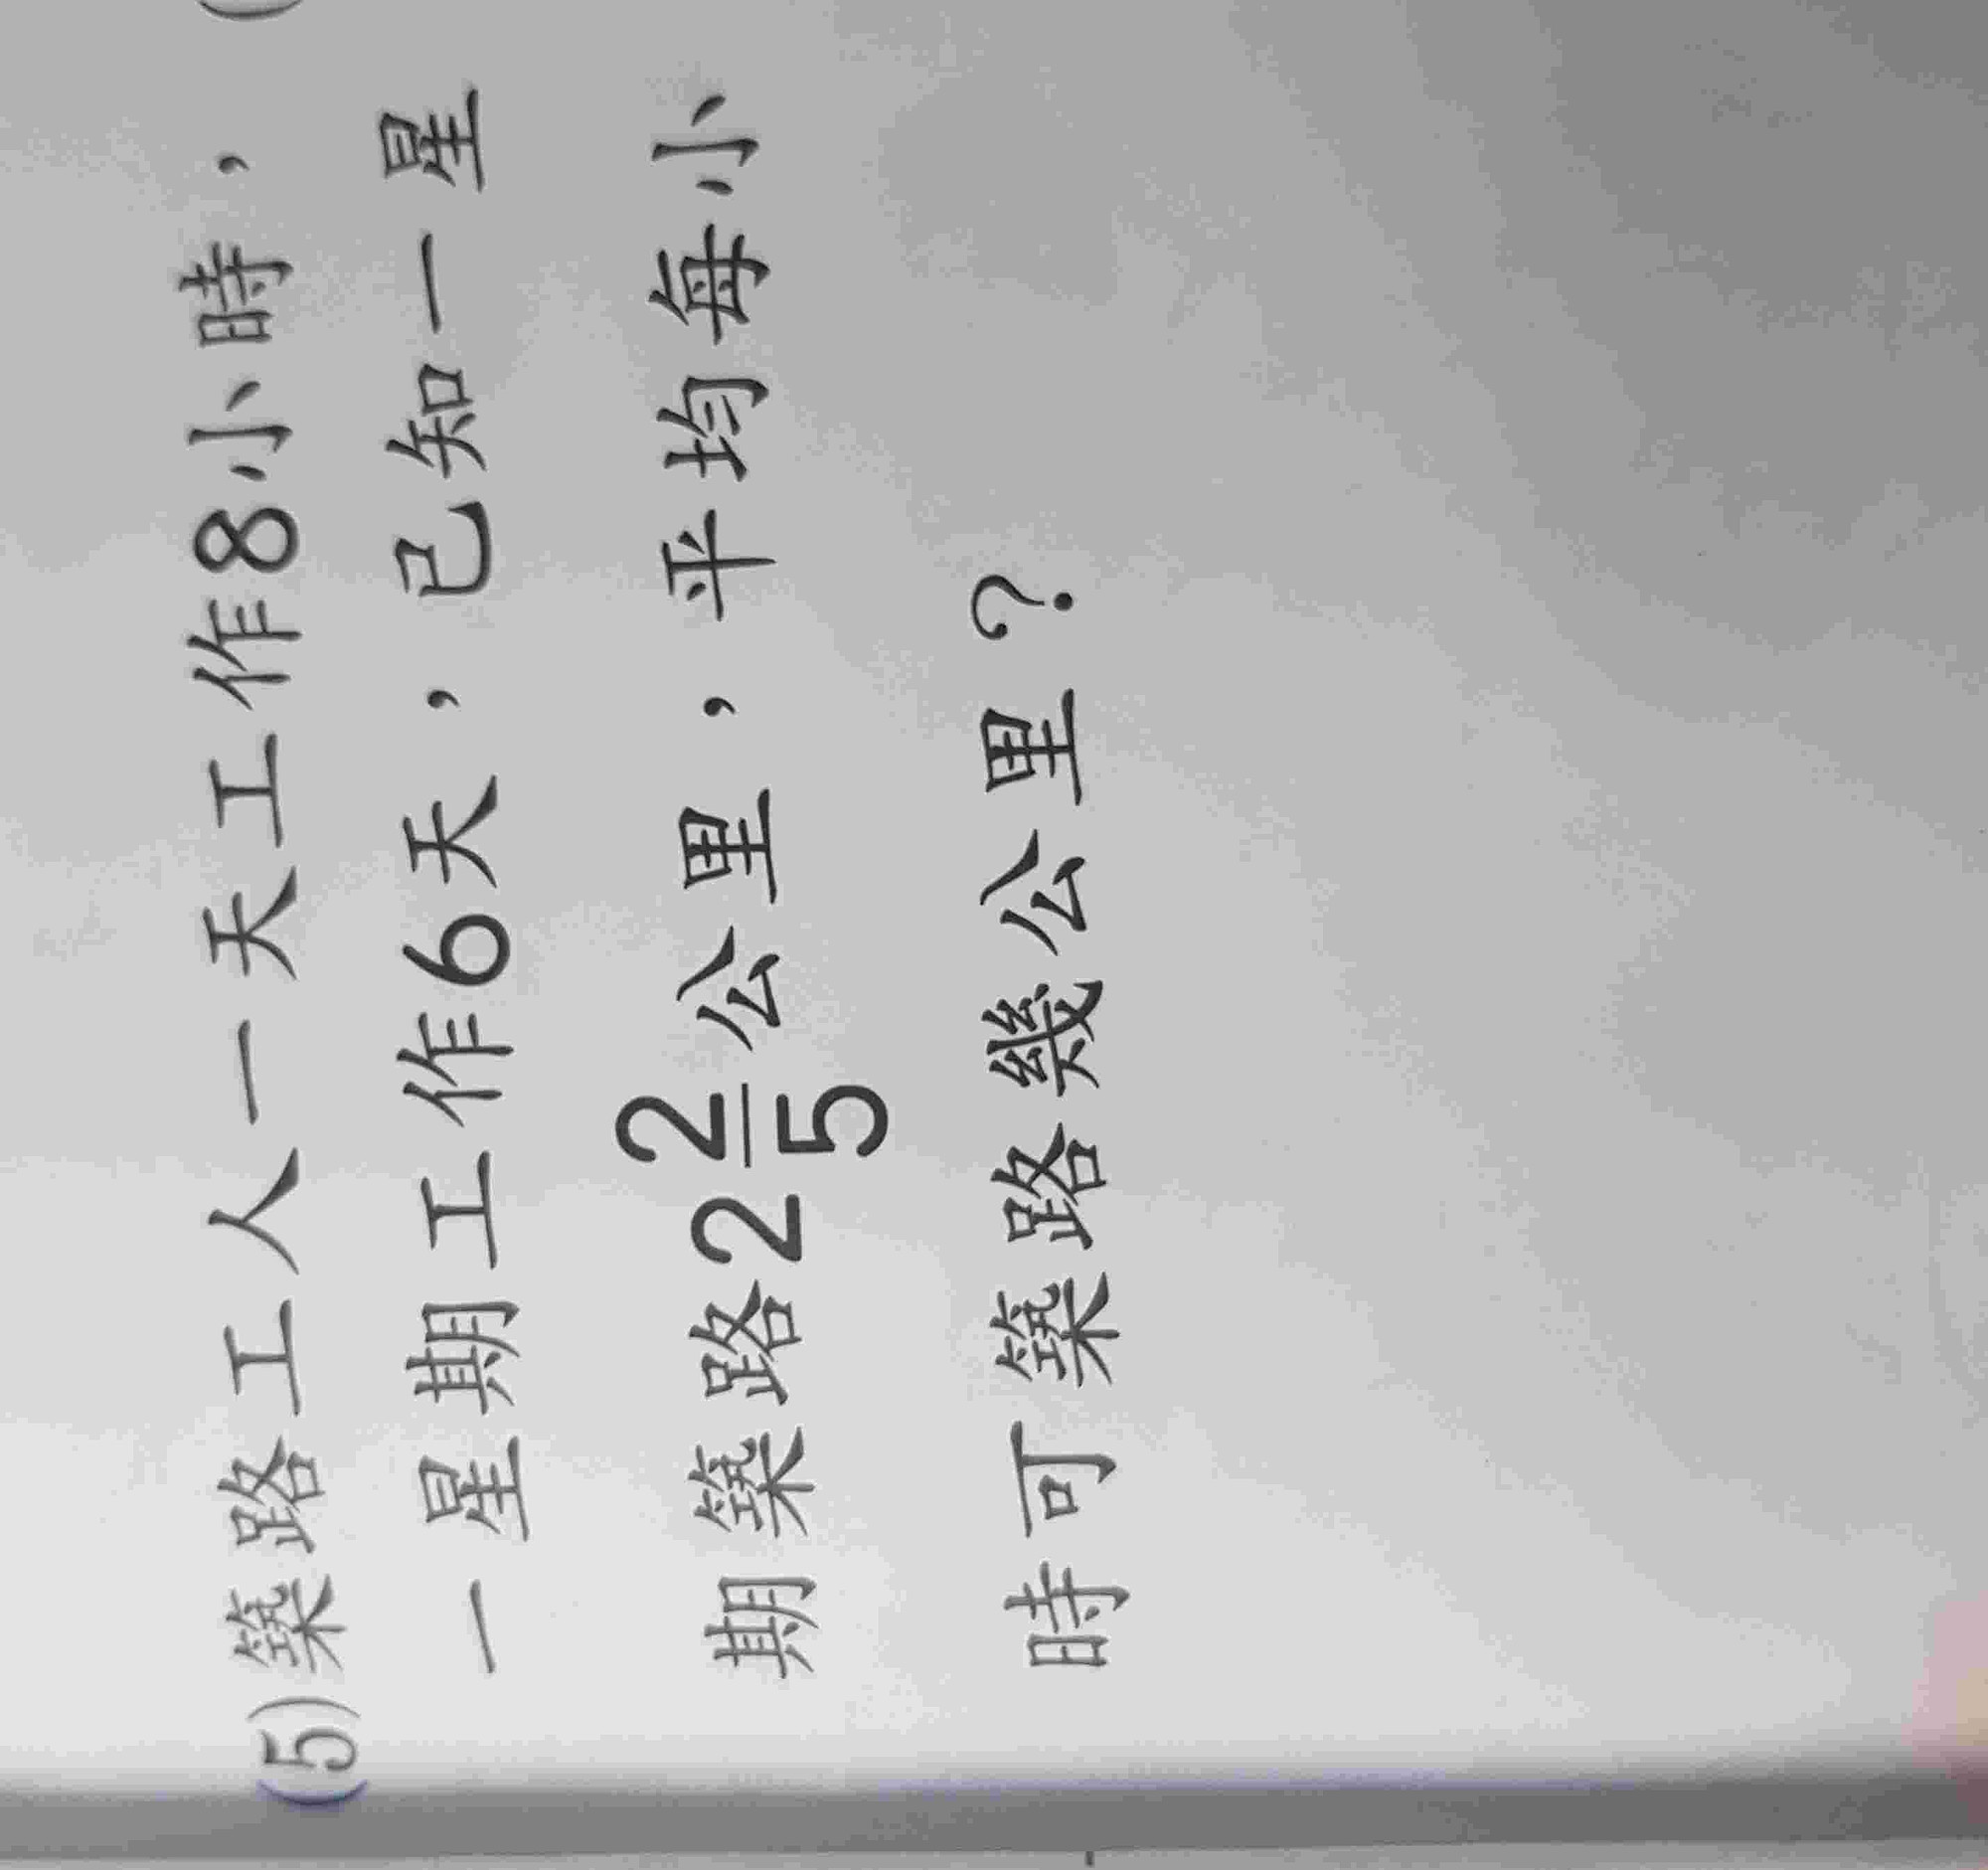 (5)築路工人一天工作8小時,
一星期工作6天,已知一星
期築路2 2/5公里,平均每小
時可築路幾公里?